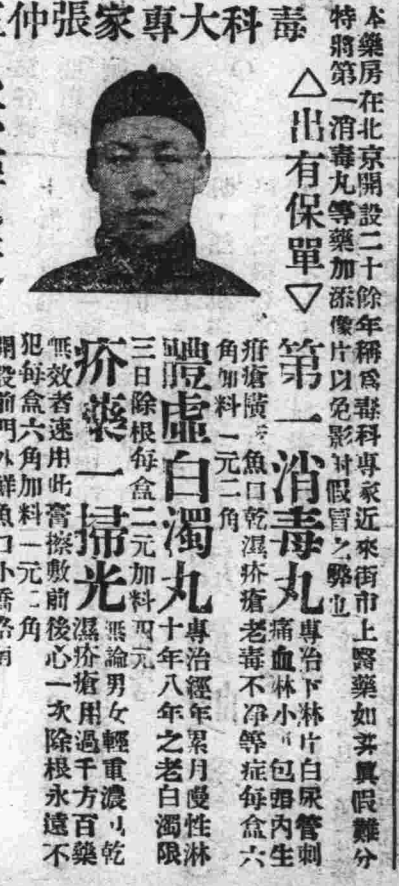 毒科大專家張仲
本藥房在北京開設二十餘年稱爲毒科專家近來街市上醫藥如林眞假難分
特將第一消毒丸等藥加添像片以免影射假冒之弊也
△出有保單▽
第一消毒丸
專治下淋片白尿管刺
痛血淋小 包頭內生
疳瘡橫 魚口乾濕疥瘡老毒不净等症每盒六
角加料一元二角
體虛白濁丸
專治經年累月慢性淋
十年八年之老白濁限
三日除根每盒二元加料四元
疥藥一掃光
無論男女輕重濃 乾
濕疥瘡用過千方百藥
無效者速用此膏擦敷前後心一次除根永遠不
犯每盒六角加料一元二角
開設前門外鮮魚口小橋路南